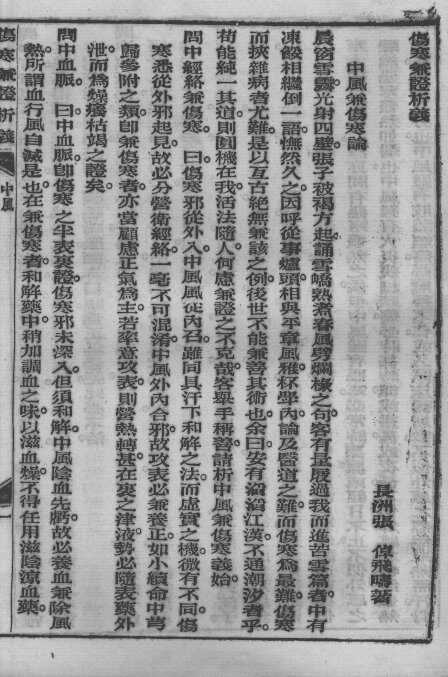 傷寒兼證析義
長洲張 倬飛疇著
中風兼傷寒論
晨窗雪霽光射四壁張子被褐方起誦雪嶠熟煮春風劈爛椽之句客有量屐過我而進苦雪篇者中有
凍餒相繼倒一語憮然久之因呼從事爐頭相與平章風雅杯學內論及醫道之難而傷寒為最難傷寒
而挾雜病者尤難是以亙古絕無兼該之例後世不能兼善其術也余曰安有滔滔江漢不通潮汐者乎
苟能純一其道則圓機在我活法隨人何慮兼證之不克哉客舉手稱善請析中風兼傷寒義始
問中經絡兼傷寒 曰傷寒邪從外入中風風從內召雖同具汗下和解之法而虛實之機微有不同傷
寒悉從外邪起見故必分營衛經絡一毫不可混淆中風外內合邪故攻表必兼養正如小續命中芎
歸參附之類卽兼傷寒者亦當顧慮正氣為主若率意攻表則營熱轉甚在裏之津液勢必隨表藥外
泄而為燥癢枯竭之證矣
問中血脈 曰中血脈卽傷寒之半表裏證傷寒邪未深入但須和解中風陰血先虧故必養血兼除風
熱所謂血行風自滅是也在兼傷寒者和解藥中稍加調血之味以滋血燥不得任用滋陰涼血藥
傷寒兼證析義 中風